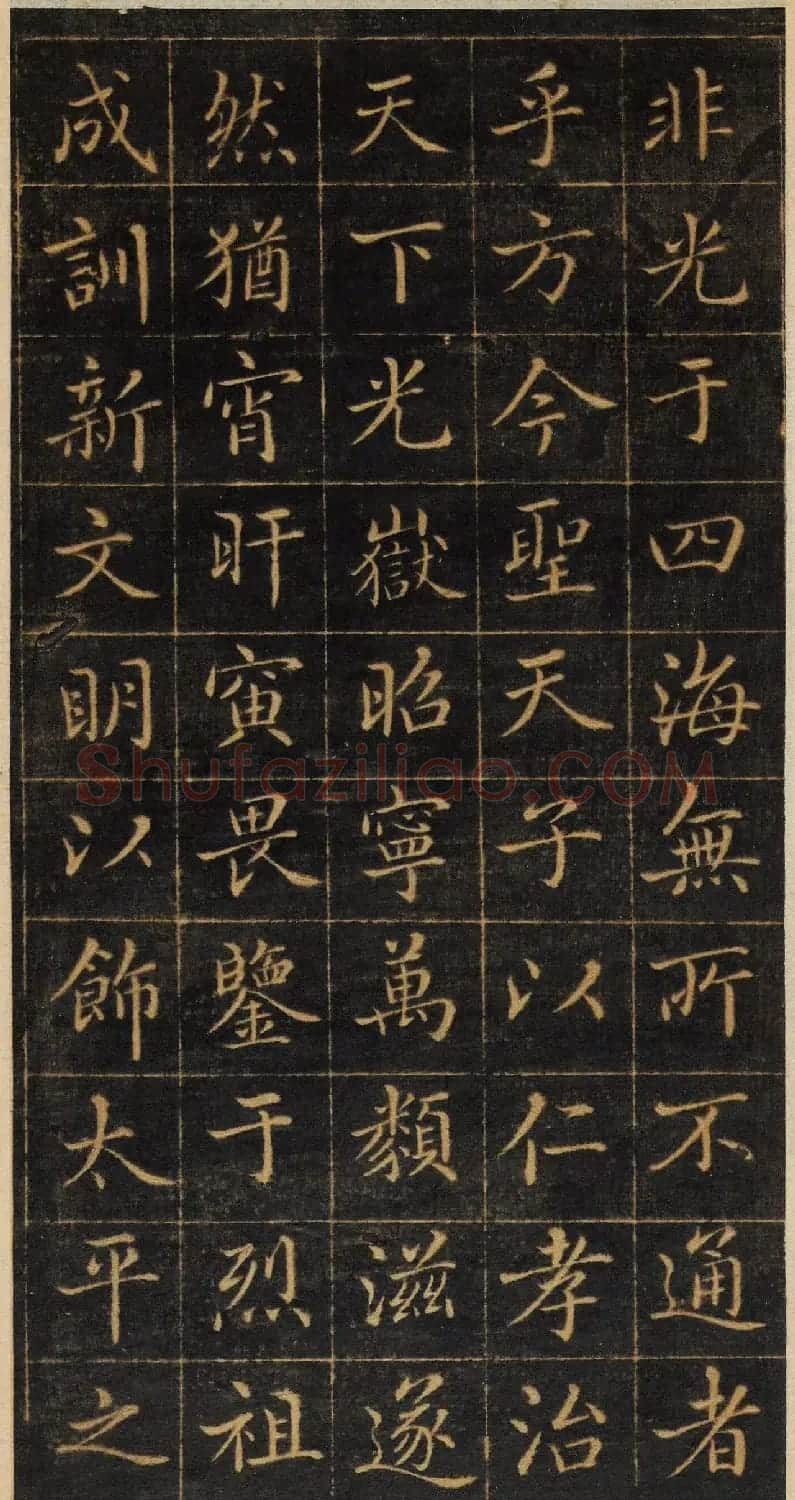 非光于四海無所不通者
乎方今聖天子以仁孝治
天下光嶽昭寧萬類滋遂
然猶宵旰寅畏鑒于烈祖
成訓新文明以飾太平之
Shufaziliao.COM